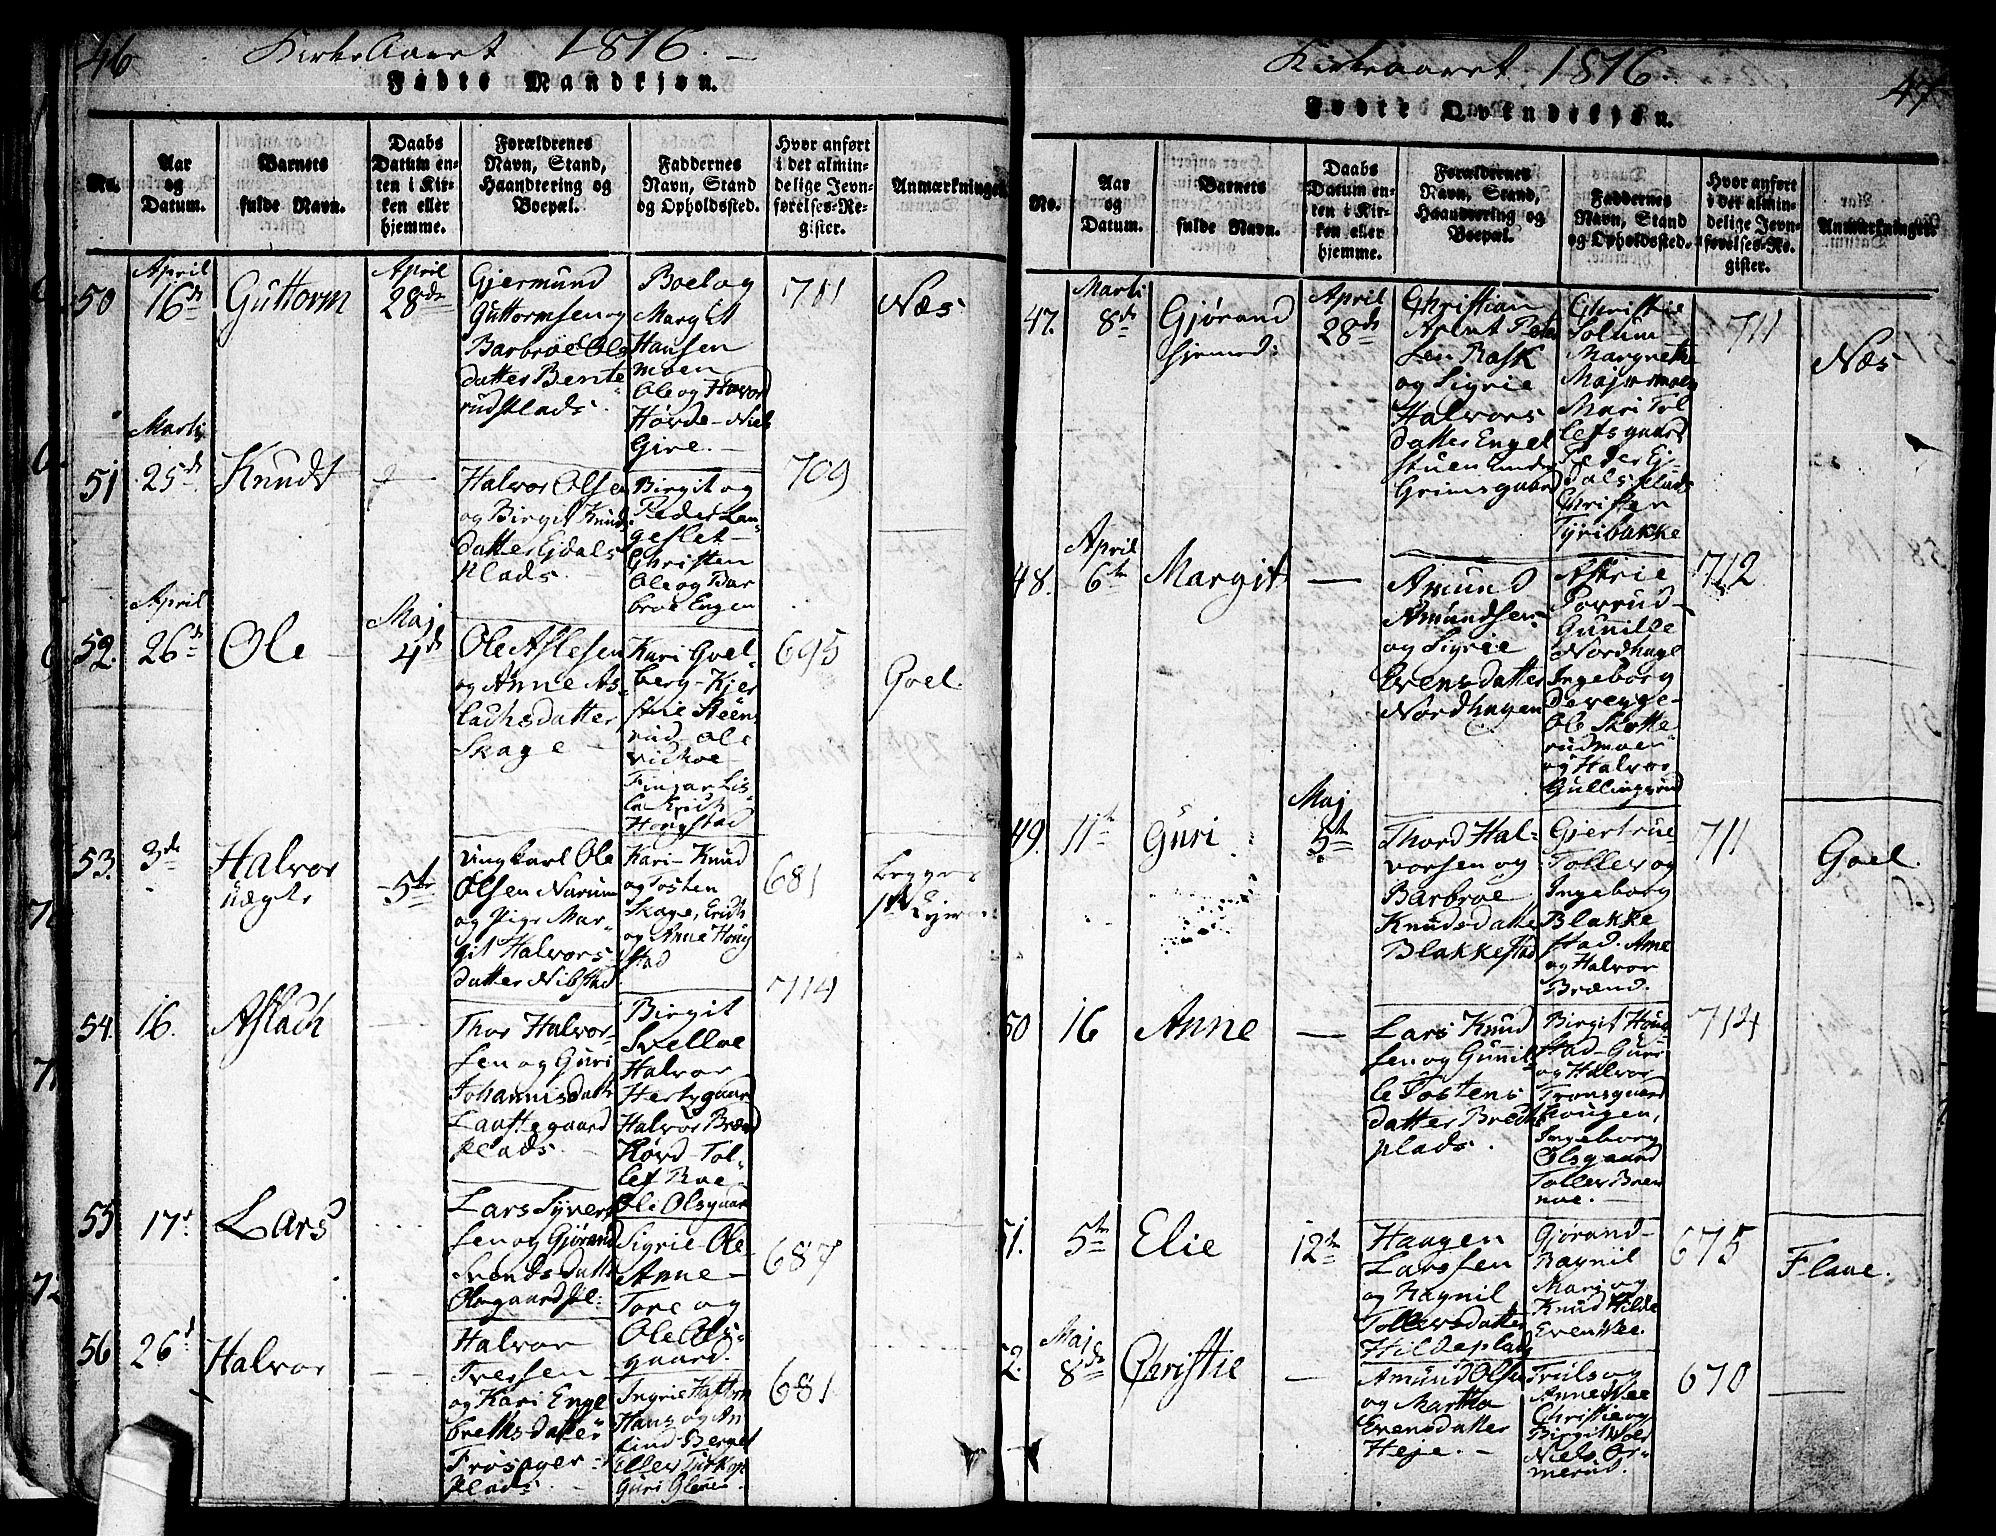 46
Kirke Aaret 1816.
Fødte Mandkjøn.
No.
Aar
og
Datum.
Barnets
fulde Navn.
Daabs
Datum en-
ten i Kir-
ken eller
hjemme.
Forældrenes
Navn, Stand,
Haandtering og
Boepæl.
Faddernes
Navn, Stand
og Opholdssted.
Hvor anført
i det almin-
delige Jevn-
førelses-Re-
gister.
Anmærkninger.
50
April
16de
Guttorm
April
28de
Gjermund
Guttormsen og
Barbroe Ols
datter Bente-
rudplads.
Boel og
Margit
Hansen
moen
Ole og Havor
Høvde - Niels
Give.
711
Næs
51
Marti
25de
Knudt
Halvor Olsen
og Birgit Knud
datter Ejdals
Plads.
Birgit og
Peder Lan-
geslet -
Christen
Ole og Bar
broe Engen
709
52.
April
26de
Ole
Maj
4de
Ole Aslesen
og Anne As-
lachsdatter
Skage
Kari Goel-
berg - Kjer
stie Steens
rud - Ole
Vidhoe
Erich
Hougstad
695
Goel.
53.
3de
Halvor
uægte
5te
Ungkarl Ole
Olsen Narum
og Pige Mar-
git Halvors
datter Nibstad
Kari - Knud
og Tosten
Skage, Erich
og Anne Houg
stad
681
Begges
1ste
54.
16.
Aslach
Thor Halvor-
sen og Guri
Johannisdatter
gaard
plads.
Birgit
Svelloe
Halvor
Hertzgaar
Halvor Brænd
Hørd - Tol-
lef Roe -
Ole Olsgaard
714
55
17de
Lars
Lars Syvert
sen og Gjørand
Svendsdatter
Olsgaard pl.
Sigrie - Ole
Anne -
Tore og
Ole Ols-
gaard.
687
56
26d
Halvor
Halvor
Iversen
og Kari Enge
brethsdatter
plads.
Ingrie
Hans og
Guri
681
47
Kirkeaaret 1816.
Fødte Qvindekjøn.
No.
Aar
og
Datum.
Barnets
fulde Navn.
Daabs
Datum en-
ten i Kir-
ken eller
hjemme.
Forældrenes
Navn, Stand,
Haandtering og
Boepæl.
Faddernes
Navn, Stand,
og Opholdssted.
Hvor anført
i det almin-
delige Jevn-
førelses-Re-
gister.
Anmærkninger.
47.
Marti
8de
Gjørand
hjemed:
April
28de
Christian
sen Rask
og Sigrie
Halvors
datter Engel
stuen under
Grimsgaard
Christie
Solum
Margrethe
Majormoen
Mari Tol
lefsgaard
Peder Ej-
dalsplads
Christen
Tyribakke
711
Næs
48.
April
6te
Margit
Amund
Amundsen
og Sigrie
Evensdatter
Nordhagen
Astrie
Porrud -
Gunilde
Nordhage
Ingeborg
Ole Skotte-
rudmoen
og Halvor
Gullingsrud
712
49.
11te
Guri
Maj
5te
Thord Hal-
vorsen og
Barbroe
Knudsdatter
Blakkestad
Gjertrue
Tollev og
Ingeborg
Blakke
stad. Anne
og Halvor
Brænd.
711
Goel.
50
16
Anne
Lars Knud
sen og Gunil-
le Tostens
datter Bredt
plads.
Birgit Houg
stad - Guri
og Halvor
Tronsgaard
hougen,
Ingeborg
Olsgaard
Tollev Bren
noe.
714
51.
5te
Elie
12te
Haagen
Larssen
og Ragnil
Tollevsdatter
Hildeplads
Gjørand -
Ragnil
Mari og
Knud Hilde
Even Vee.
675
Flaae.
52.
Maj
8de
Christie
Amund Olsen
og Martha
Evensdatter
Heje.
Truls og
Anne Vee
Christie og
Birgit
Niels Or-
merud.
670